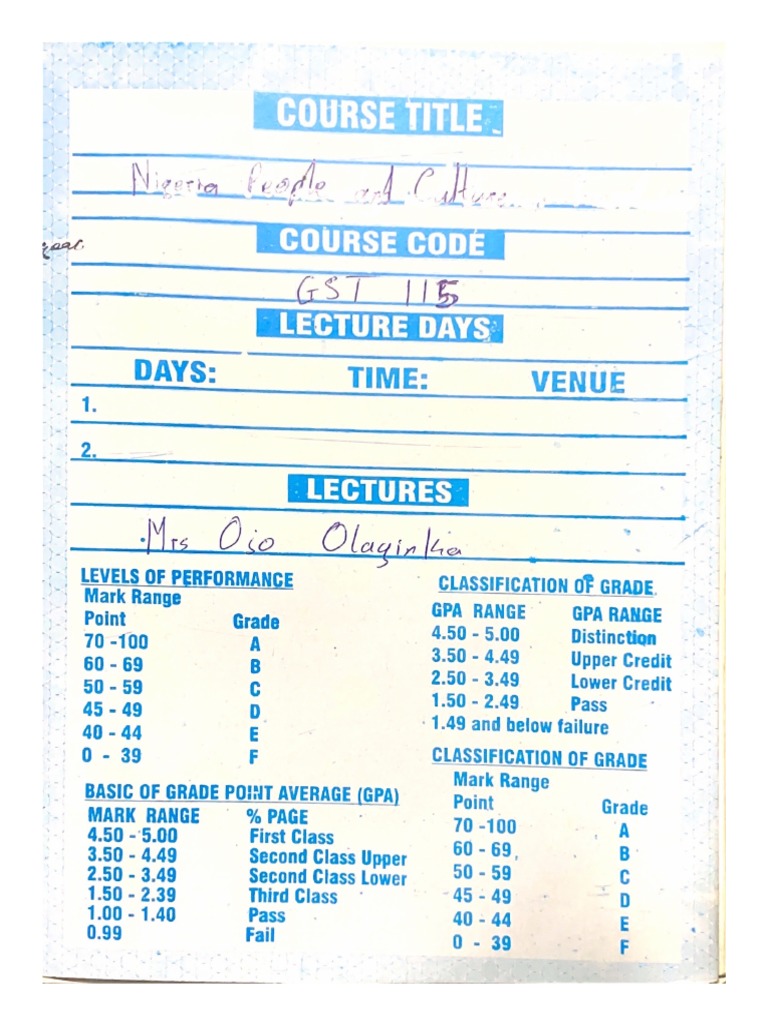 COURSE TITLE
Nigeria People and Culture
COURSE CODE
GST 115
LECTURE DAYS
DAYS: TIME: VENUE
1.
2.
LECTURES
Mrs Ojo Olayinka
LEVELS OF PERFORMANCE
Mark Range
Point Grade
70 -100 A
60 - 69 B
50 - 59 C
45 - 49 D
40 - 44 E
0 - 39 F
BASIC OF GRADE POINT AVERAGE (GPA)
MARK RANGE % PAGE
4.50 - 5.00 First Class
3.50 - 4.49 Second Class Upper
2.50 - 3.49 Second Class Lower
1.50 - 2.39 Third Class
1.00 - 1.40 Pass
0.99 Fail
CLASSIFICATION OF GRADE
GPA RANGE GPA RANGE
4.50 - 5.00 Distinction
3.50 - 4.49 Upper Credit
2.50 - 3.49 Lower Credit
1.50 - 2.49 Pass
1.49 and below failure
CLASSIFICATION OF GRADE
Mark Range
Point Grade
70 -100 A
60 - 69 B
50 - 59 C
45 - 49 D
40 - 44 E
0 - 39 F